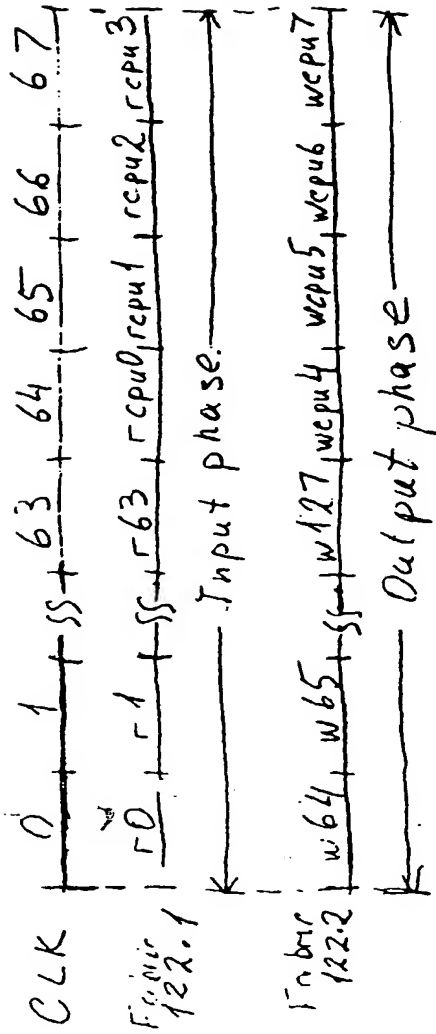 CLK 0 1 63 64 65 66 67
122.1 r0 r1 r63 rcpu0 rcpu1 rcpu2 rcpu3
Input phase
122.2 w64 w65 w127 wcpu4 wcpu5 wcpu6 wcpu7
Output phase